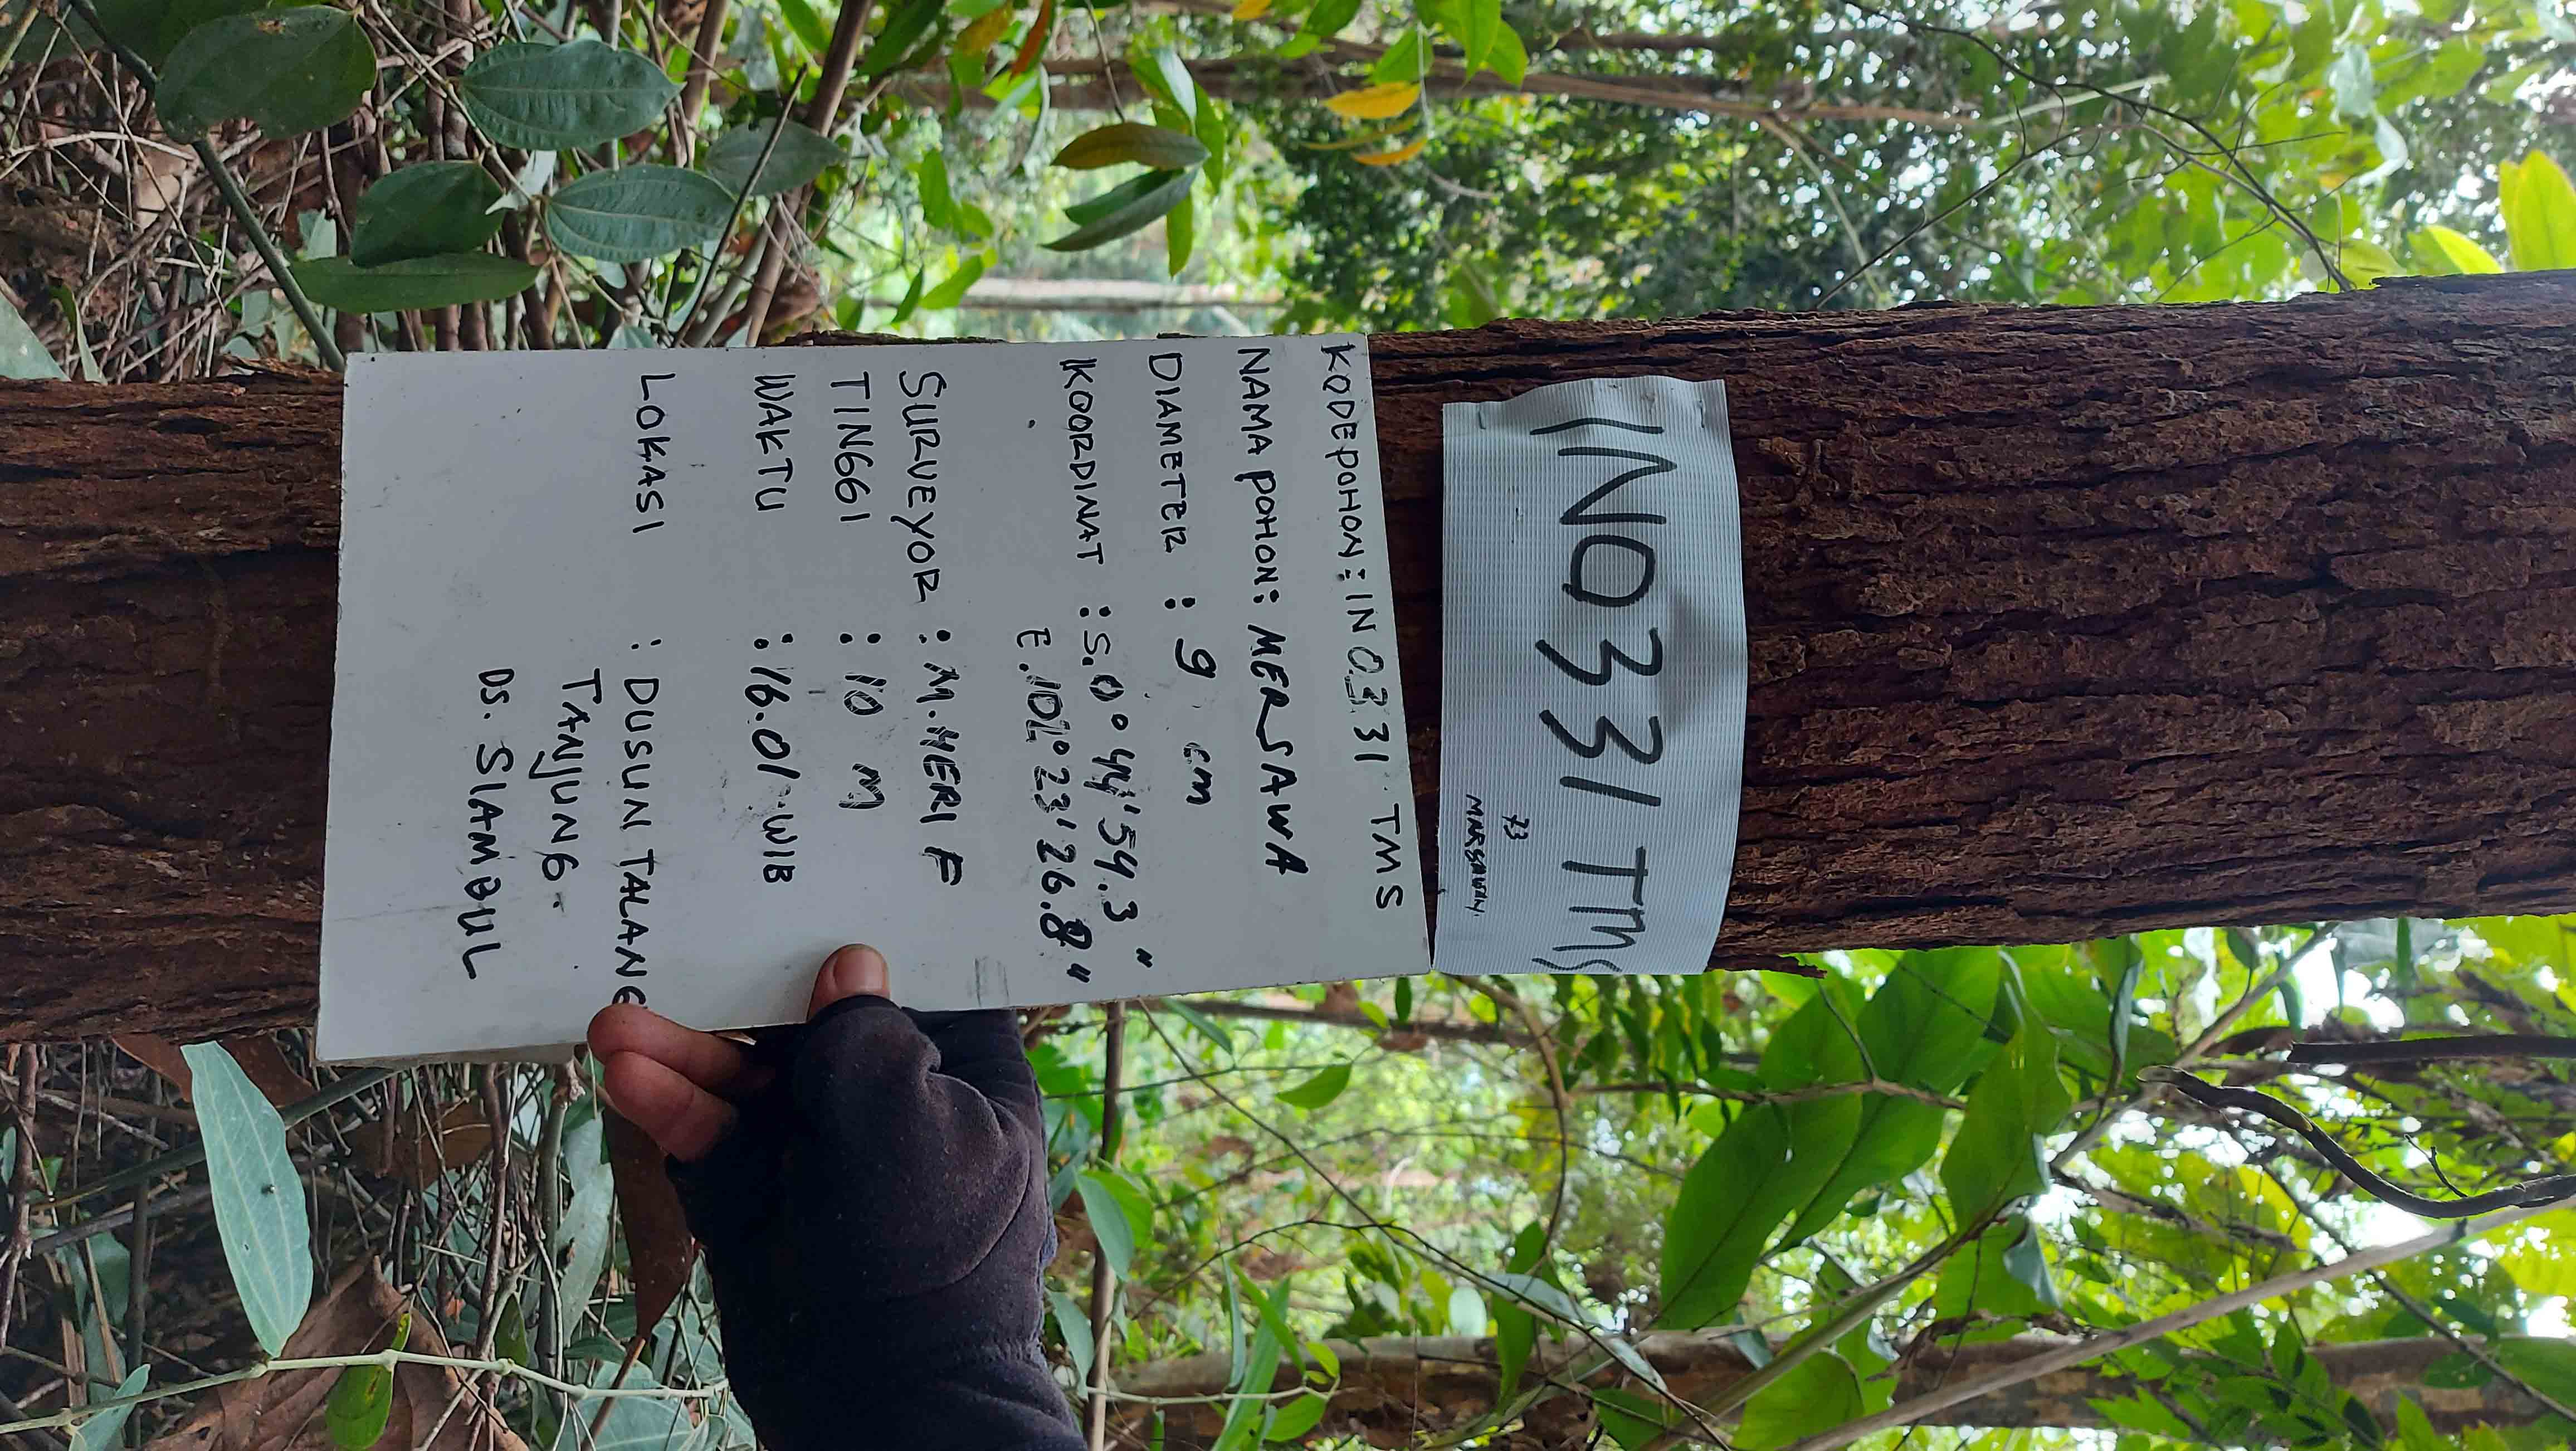 IN0331 TMS
73
MARSAWAN.
KODE POHON : IN 0331 TMS
NAMA POHON : MERSAWA
DIAMETER : 9 cm
KOORDINAT : S. 0° 44' 54.3"
E. 102° 23' 26.8"
SURVEYOR : M. HERI F
TINGGI : 10 M
WAKTU : 16.01 WIB
LOKASI : DUSUN TALANG
TANJUNG.
DS. SIAMBUL